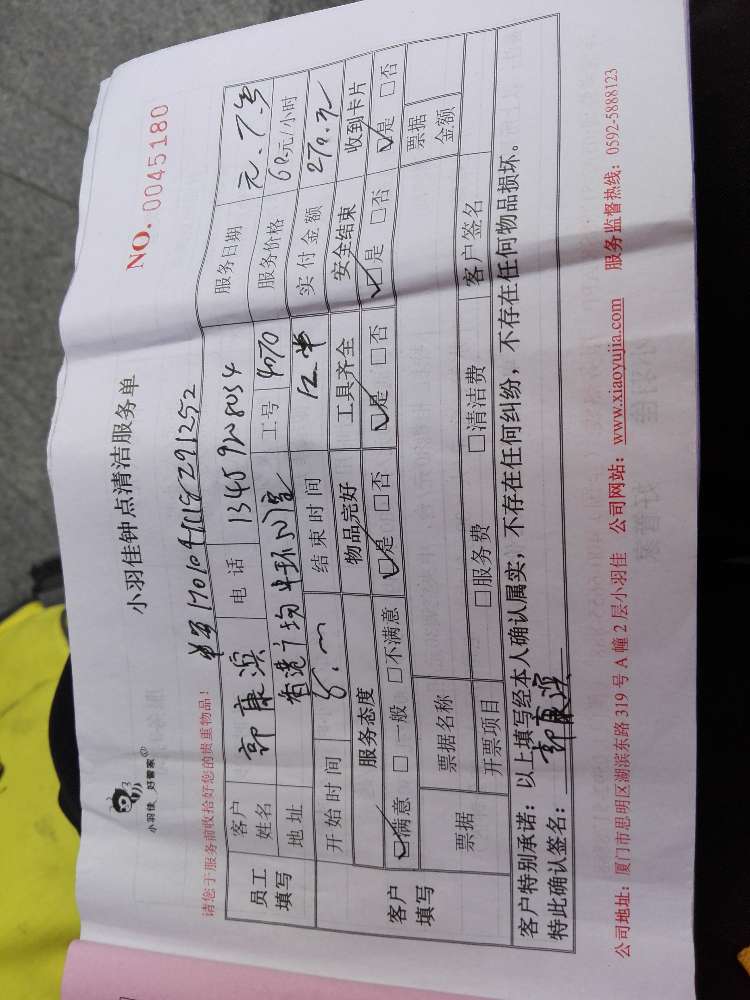 小羽佳 好管家
小羽佳钟点清洁服务单
NO. 0045180
请您于服务前收拾好您的贵重物品！
员工填写
客户姓名 郭康滨 电话 13459208034 服务日期
地址 香港广场 工号 4070 服务价格 60元/小时
开始时间 结束时间 实付金额 270元
客户填写
服务态度 物品完好 工具齐全 安全结束 收到卡片
☑满意 □一般 □不满意 ☑是 □否 ☑是 □否 ☑是 □否 ☑是 □否
票据 票据名称 票据金额
开票项目 □服务费 □清洁费 客户签名
客户特别承诺：以上填写经本人确认属实，不存在任何纠纷，不存在任何物品损坏。
特此确认签名：郭康滨
公司地址：厦门市思明区湖滨东路319号A幢2层小羽佳 公司网站：www.xiaoyujia.com 服务监督热线：0592-5888123